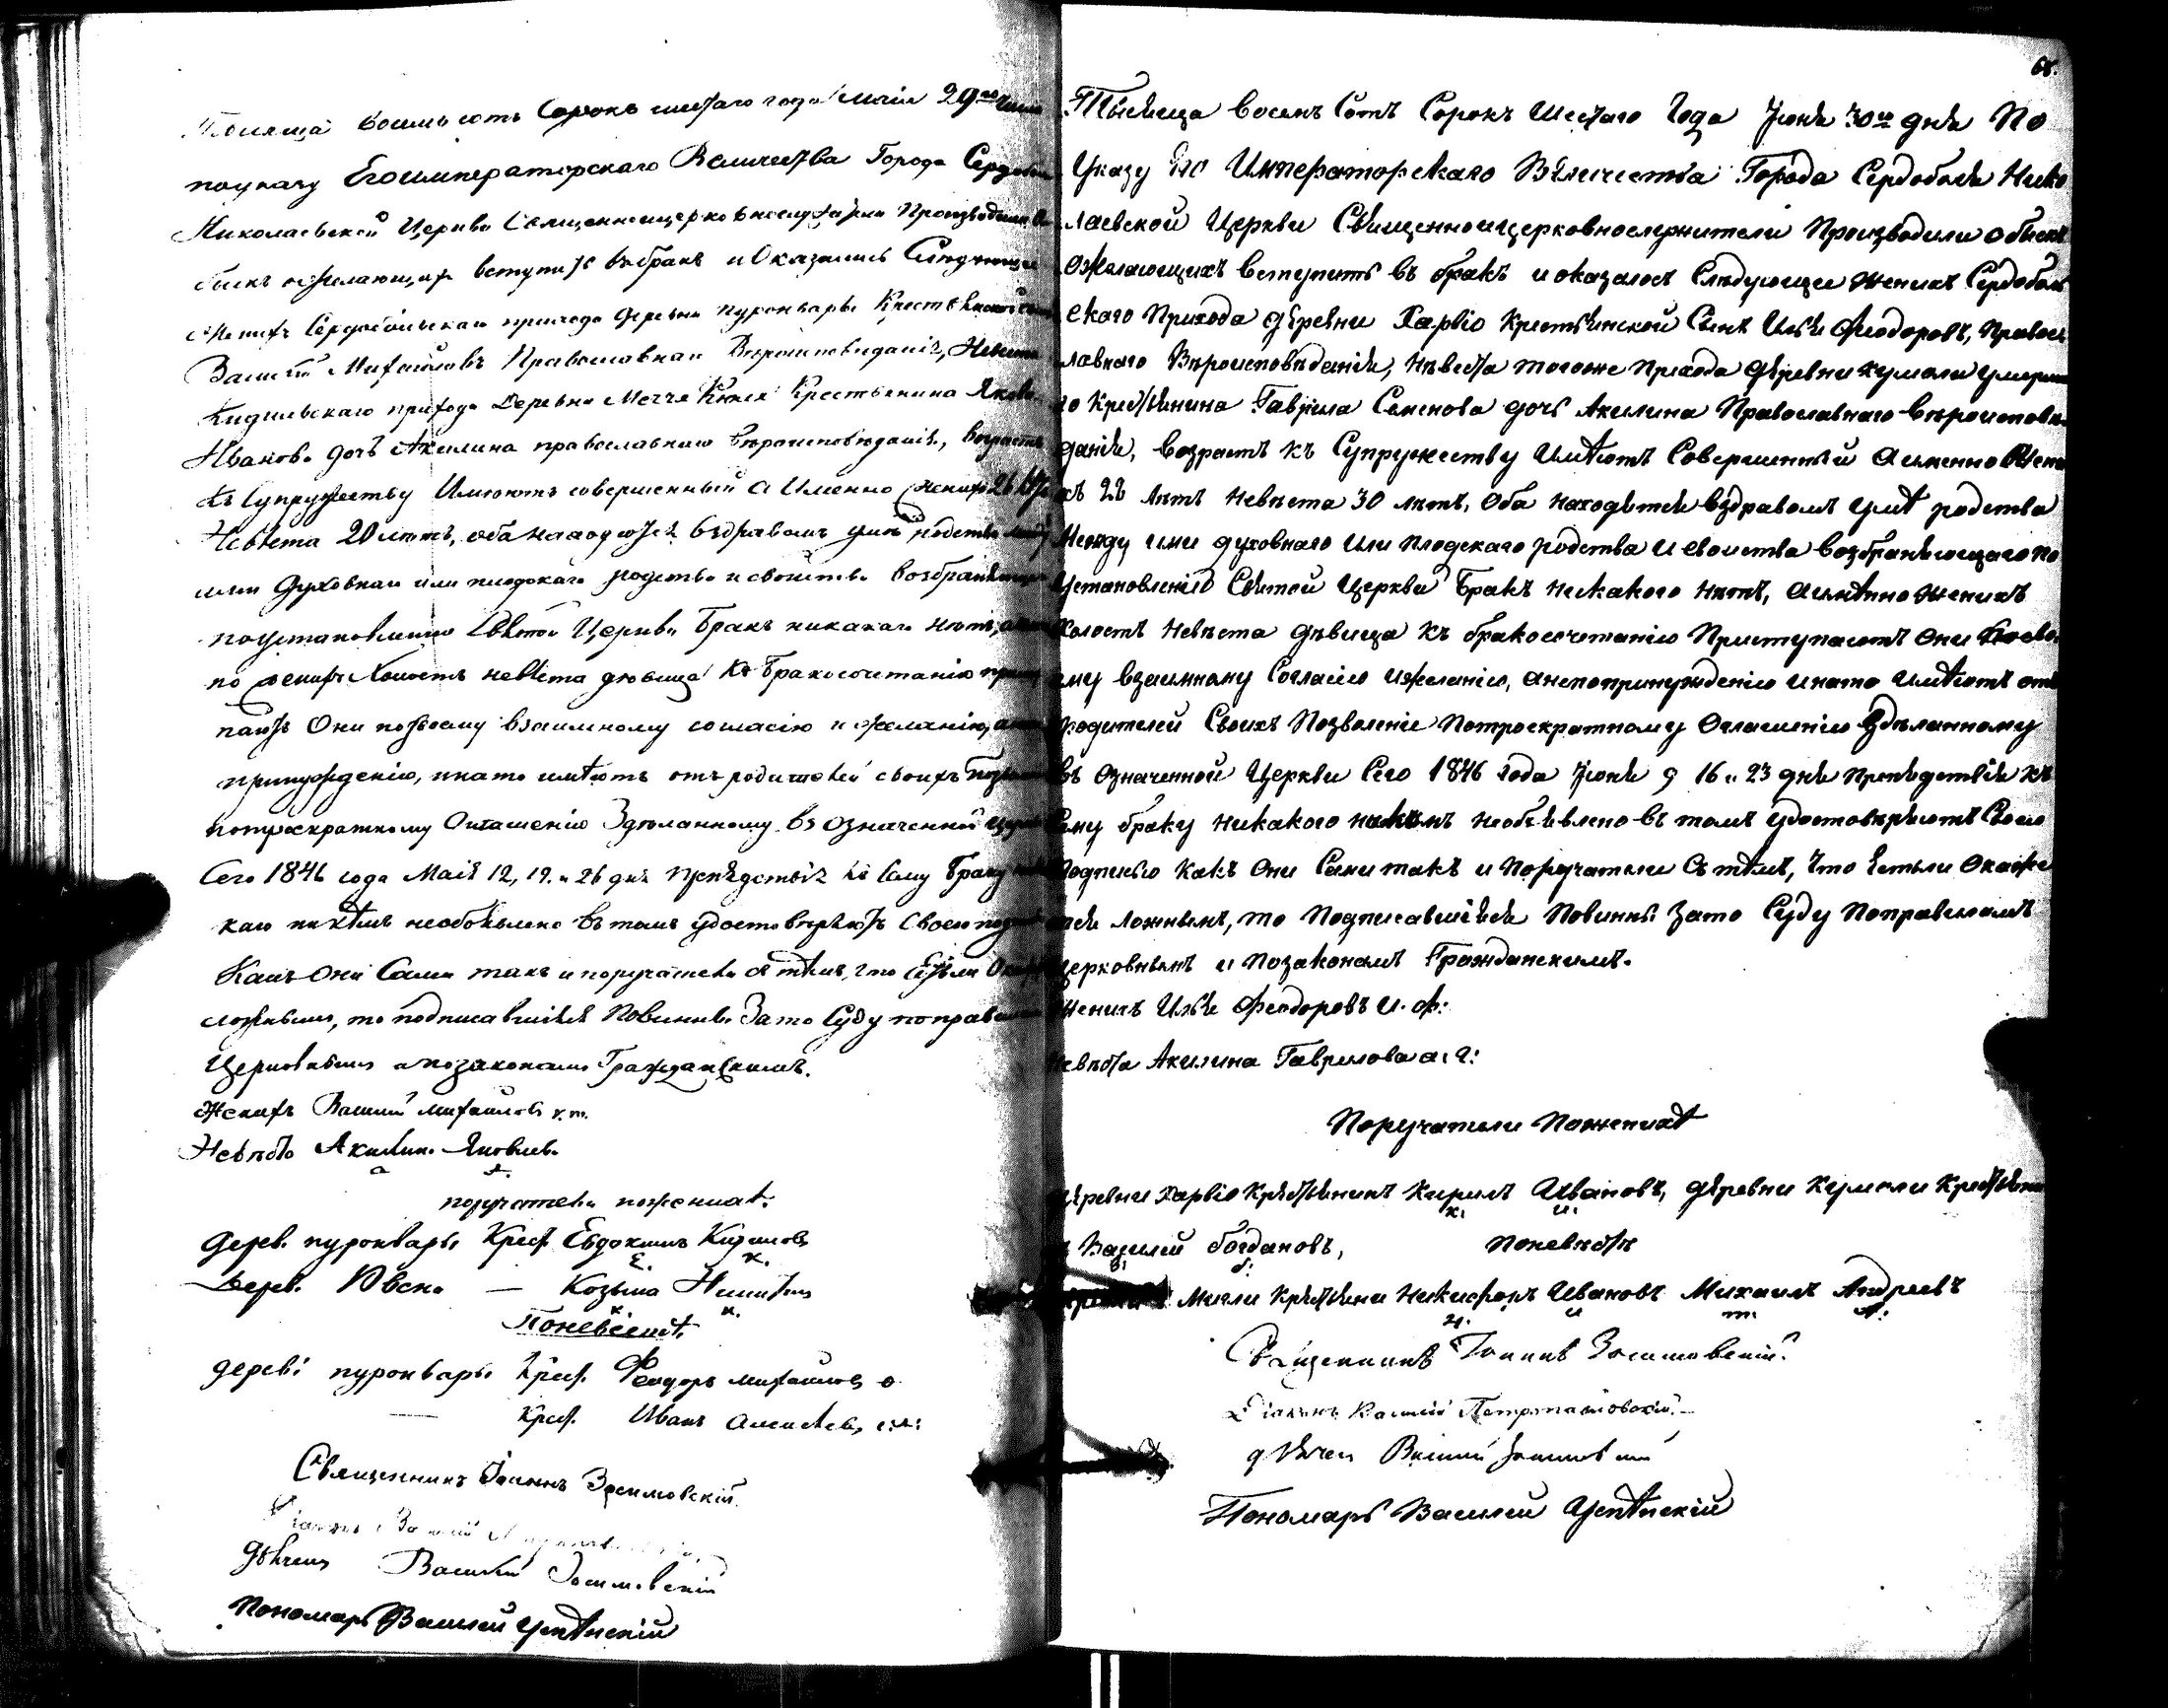 Тысяща восемь сотъ Сорокъ шестаго года Маія 29го
поуказу Егоимператорскаго Величества Города
Николаевской Церкви Священноицерковнослужители Производили
сыскъ ожелающихъ вступить въбракъ и Оказались Следующие
Женихъ Сердобольскаго прихода деревни пуронвары Крестьянской
Василій Михайловъ Православнаго Вероисповиданія, Невеста
Кидилевскаго прихода Деревни Крестьянина
Иванова дочь Акилина православнаго вероисповюданія, возрастъ
къ Супружеству Имюютъ совершенный а Именно женихъ 26
Невѣста 20 лѣтъ, оба находятся вздравомъ умѣ родства
ими Духовнаго или плодскаго родства и свойства возбраняющаго
поустановлению Святой Церкви Бракъ никакаго нѣтъ,
но женихъ Холостъ невѣста дювица къ Бракосочетанію
паютъ Они посвоему взаимному согласію и желанію,
принужденію, инато имѣютъ отъ родителей своихъ
потроекратному Оглашенію Здѣланному въ означенной
Сего 1846 года Маія 12, 19. и 26 дня препядствія къ Сему браку
каго никѣмъ необъявлено въ томъ удостовѣряютъ Своею
Какъ Они Сами такъ и поручатели съ тѣмъ, что Естьли
ложнымъ, то подписавшійся Повинны Зато Суду
Церковнымъ ипозаконамъ Гражданскимъ.
Женихъ Василій Михайловъ
Невѣста Акилина Яковлева
поручатели поженихѣ
дерев. пуронвары Крест. Евдокимъ Кириловъ
Е. К.
Дерев. — Козьма Никитинъ
К. Н.
Поневѣстѣ
дерев: пуронвары Крест. Феодоръ Михайловъ
— Крест. Иванъ Алексѣевъ
Священникъ Іоаннъ Зосимовскій
Діаконъ Василій
дьячекъ Василій Зосимовскій
Пономарь Василей Успѣнскій
68.
Тысяща восемь Сотъ Сорокъ Шестаго Года Іюня 30го дня По
Указу Его Императорскаго Величества Города Сердоболя Нико
лаевской Церкви Священноицерковнослужители Производили обыскъ
ожелающихъ вступить въ бракъ и оказалось Слѣдующее Женихъ Сердоболь
скаго Прихода дѣревни Харвіо Крестьянской Сынъ Илья Феодоровъ, Правос
лавнаго Вѣроисповѣданія, Нѣвѣста тогоже Прихода дѣревни Кумоли
го Крестьянина Гаврила Семенова дочь Акилина Православнаго Вѣроисповѣ
данія, возрастъ къ Супружеству Имѣютъ Совершенный Аименно Жени
хъ 22 лѣтъ Невѣста 30 лѣтъ, Оба находятся вздравомъ умѣ родства
Между ими духовнаго Или плодскаго родства и своиства возбраняющаго по
Установленію Святой Церкви Бракъ Некакого нѣтъ, Аимянно женихъ
Холостъ Невѣста дѣвица къ бракосочетанію Приступаютъ Они Посво
ему взаимному Согласію ижеланію, анепопринужденію инато имѣютъ отъ
родителей Своихъ Позволеніе Потроекратному Оглашенію Здѣланному
въ Означенной Церкви Сего 1846 года Іюня 9 16 и 23 дня препядствія къ
Сему браку Некакого никѣмъ необъявлено въ томъ удостовѣряютъ Своею
Подписью Какъ Они Сами такъ и Поручатели Съ тѣмъ, что Естьли Окаже
тся Ложнымъ, то Подписавшійся Повинны Зато Суду Поправиламъ
Церковнымъ и Позаконамъ Гражданскимъ.
Женихъ Илья Феодоровъ И. Ф:
Невѣста Акилина Гаврилова а. г:
Поручатели Поженихѣ
дѣревни Харвіо Крестьянинъ Кирилъ Ивановъ, дѣревни Кумоли
К. И.
Василей богдановъ, Поневѣстѣ
В: б:
Крестьяни Никифоръ Ивановъ Михаилъ Андреевъ
Н. И М. А.
Священникъ Іоаннъ Зосимовскій
Діаконъ Василій Петропавловскій
дьячекъ Василій
Пономарь Василей Успѣнскій